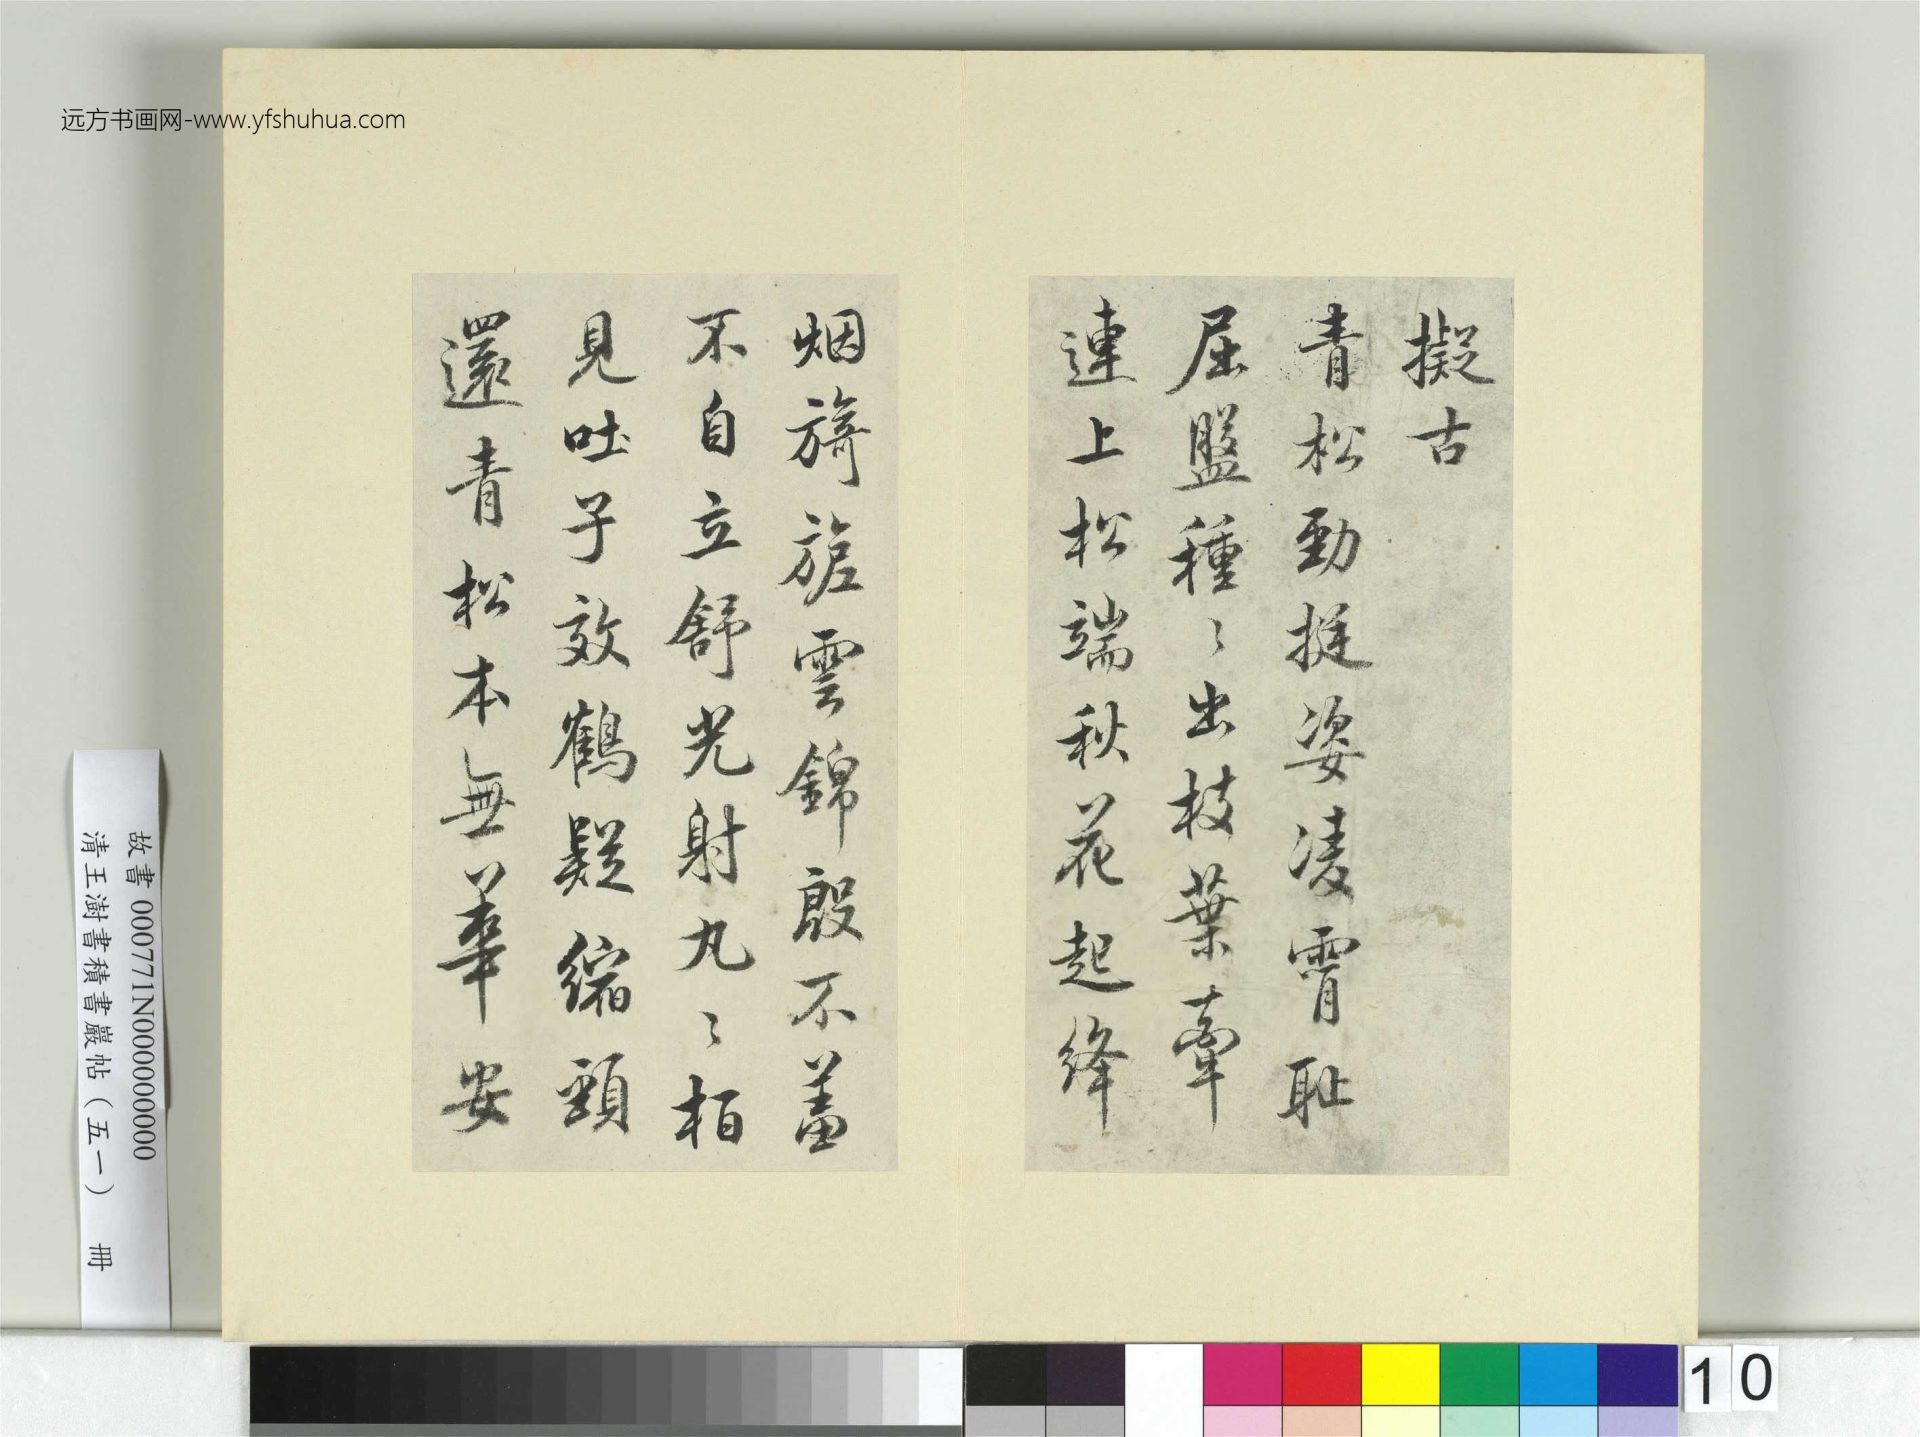 远方书画网-www.yfshuhua.com
擬古
青松勁挺姿凌霄耻
屈盤種〻出枝葉牽
連上松端秋花起絳
烟旖旎雲錦殷不羞
不自立舒光射丸〻柏
見吐子效鶴疑縮頸
還青松本無華安
故書 000771N000000000
清王澍書積書巖帖（五一） 冊
10